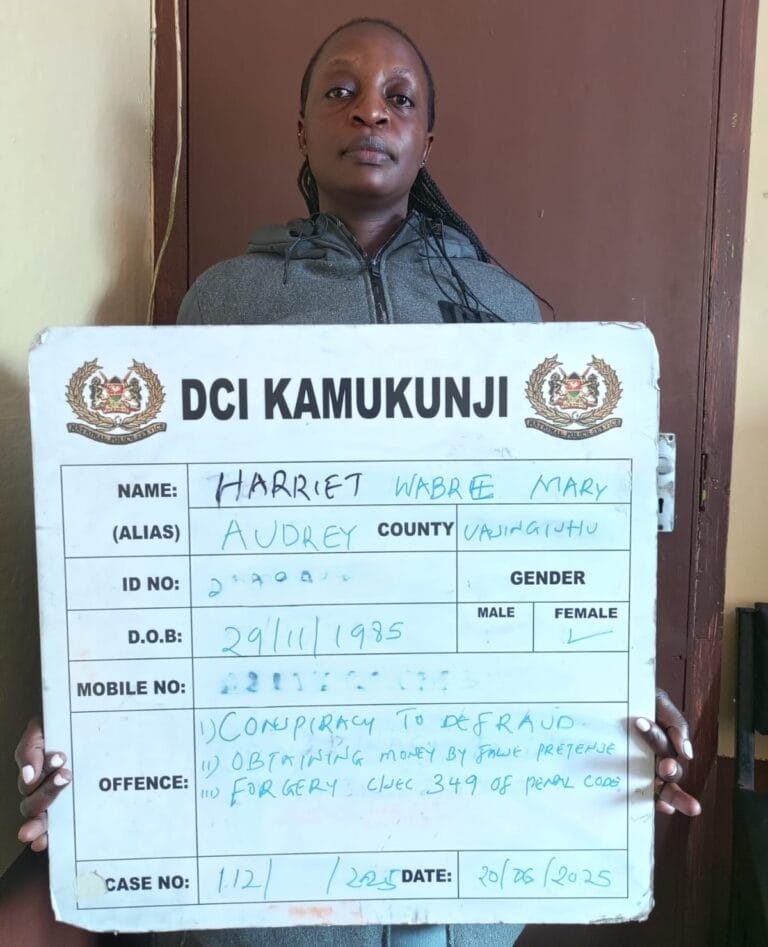 NATIONAL POLICE SERVICE
DCI KAMUKUNJI
NATIONAL POLICE SERVICE
NAME: HARRIET WABREE MARY
(ALIAS) AUDREY COUNTY UASINGISHU
ID NO: GENDER
MALE FEMALE ✓
D.O.B: 29/11/1985
MOBILE NO:
I) CONSPIRACY TO DEFRAUD.
II) OBTAINING MONEY BY FALSE PRETENSE
OFFENCE: III) FORGERY 349 OF PENAL CODE
CASE NO: 112/ /2025 DATE: 20/06/2025